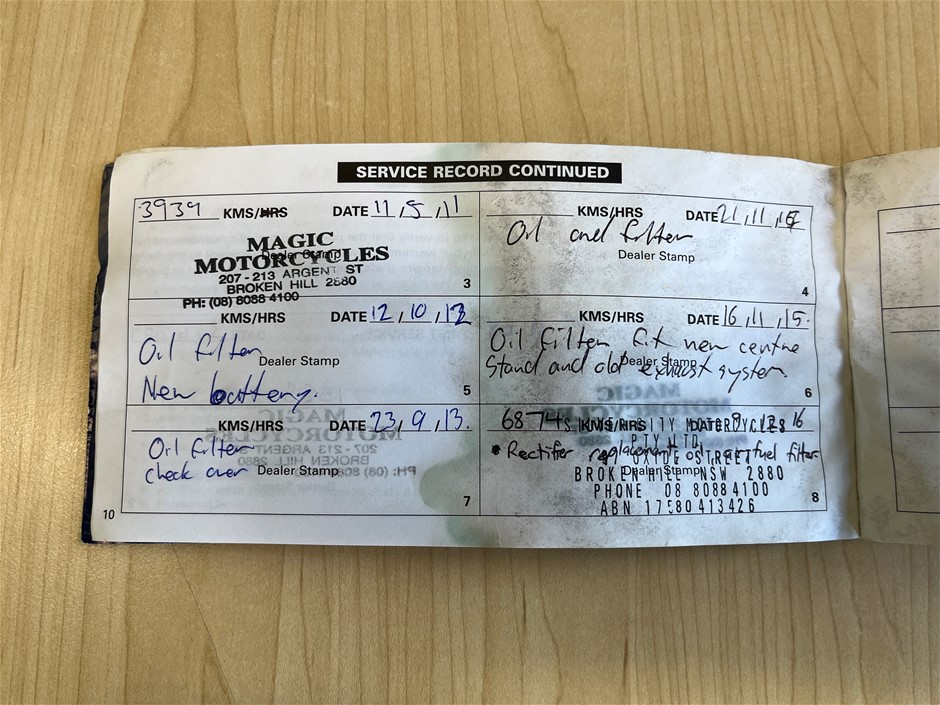 SERVICE RECORD CONTINUED
3939 KMS/HRS DATE 11,5,11
MAGIC
MOTORCYCLES
Dealer Stamp
207-213 ARGENT ST
BROKEN HILL 2880
PH: (08) 8088 4100
3
KMS/HRS DATE 21,11,
Oil and filter
Dealer Stamp
4
KMS/HRS DATE 12,10,12
Oil filter
Dealer Stamp
New battery.
5
KMS/HRS DATE 16,11,15.
Oil filter fit new centre
Dealer Stamp
Stand and old exhaust system.
6
KMS/HRS DATE 23,9,13.
Oil filter
check over
Dealer Stamp
7
6874 KMS/HRS DATE 9 12 16
CITY MOTORCYCLES
PTY LTD
• Rectifier replacement oil air fuel filter
OXIDE STREET
Dealer Stamp
BROKEN HILL NSW 2880
PHONE 08 80884100
ABN 17580413426
8
10